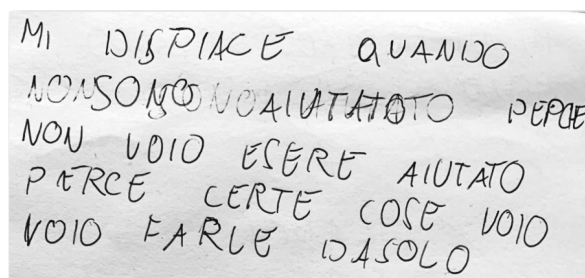 MI DISPIACE QUANDO
NONSONO AIUTATO PERCE
NON VOIO ESERE AIUTATO
PERCE CERTE COSE VOIO
VOIO FARLE DASOLO